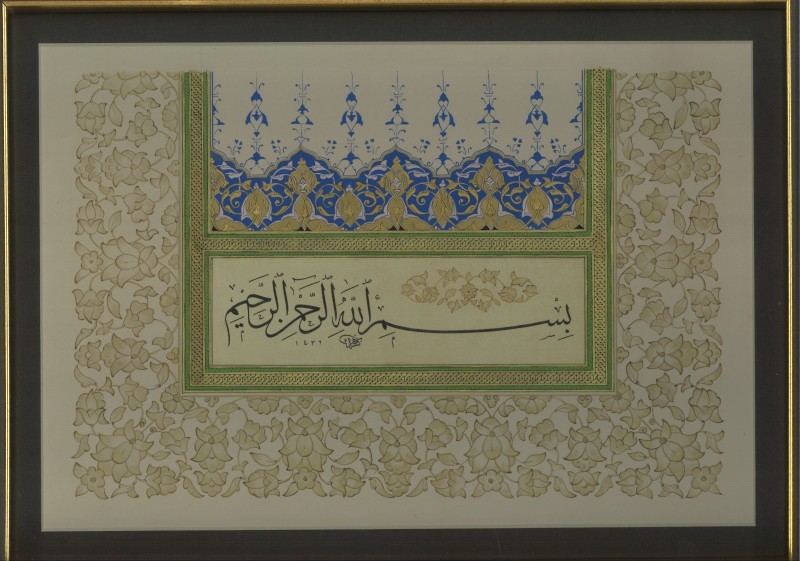 بِسْمِ اللَّهِ الرَّحْمٰنِ الرَّحِيمِ
١٤٣٦